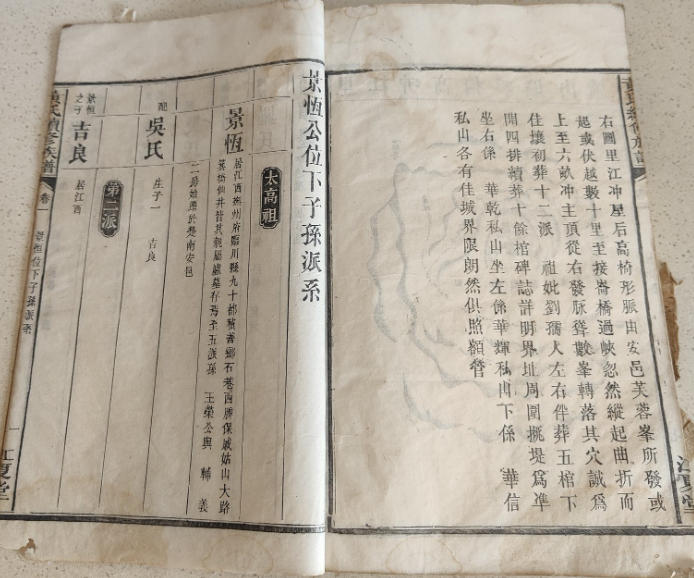 右圖里江冲星后高椅形脈由安邑芙蓉峯所發或
起或伏越數十里至接崙橋過峽忽然縱起曲折而
上至六畝冲主頂從右發脈聳數峯轉落其穴誠爲
佳壤初葬十二派 祖妣劉孺人左右伴葬五棺下
開四排續葬十餘棺碑誌詳明界址周圍挑堤爲凖
坐右係 華乾私山坐左係華輝私山下係 華信
私山各有佳城界限朗然俱照額管
黃氏續修族譜
江夏堂
景恆公位下子孫派系
太高祖
景恆
居江西撫州府臨川縣九十都積善鄉石巷西廨保城姑山大路
二房始遷於楚南安邑
王榮公與 輔 義
配
吳氏
生子一 吉良
第二派
景恆之子
吉良
居江西
黃氏續修族譜
卷一
景恆位下子孫派系
一
江夏堂